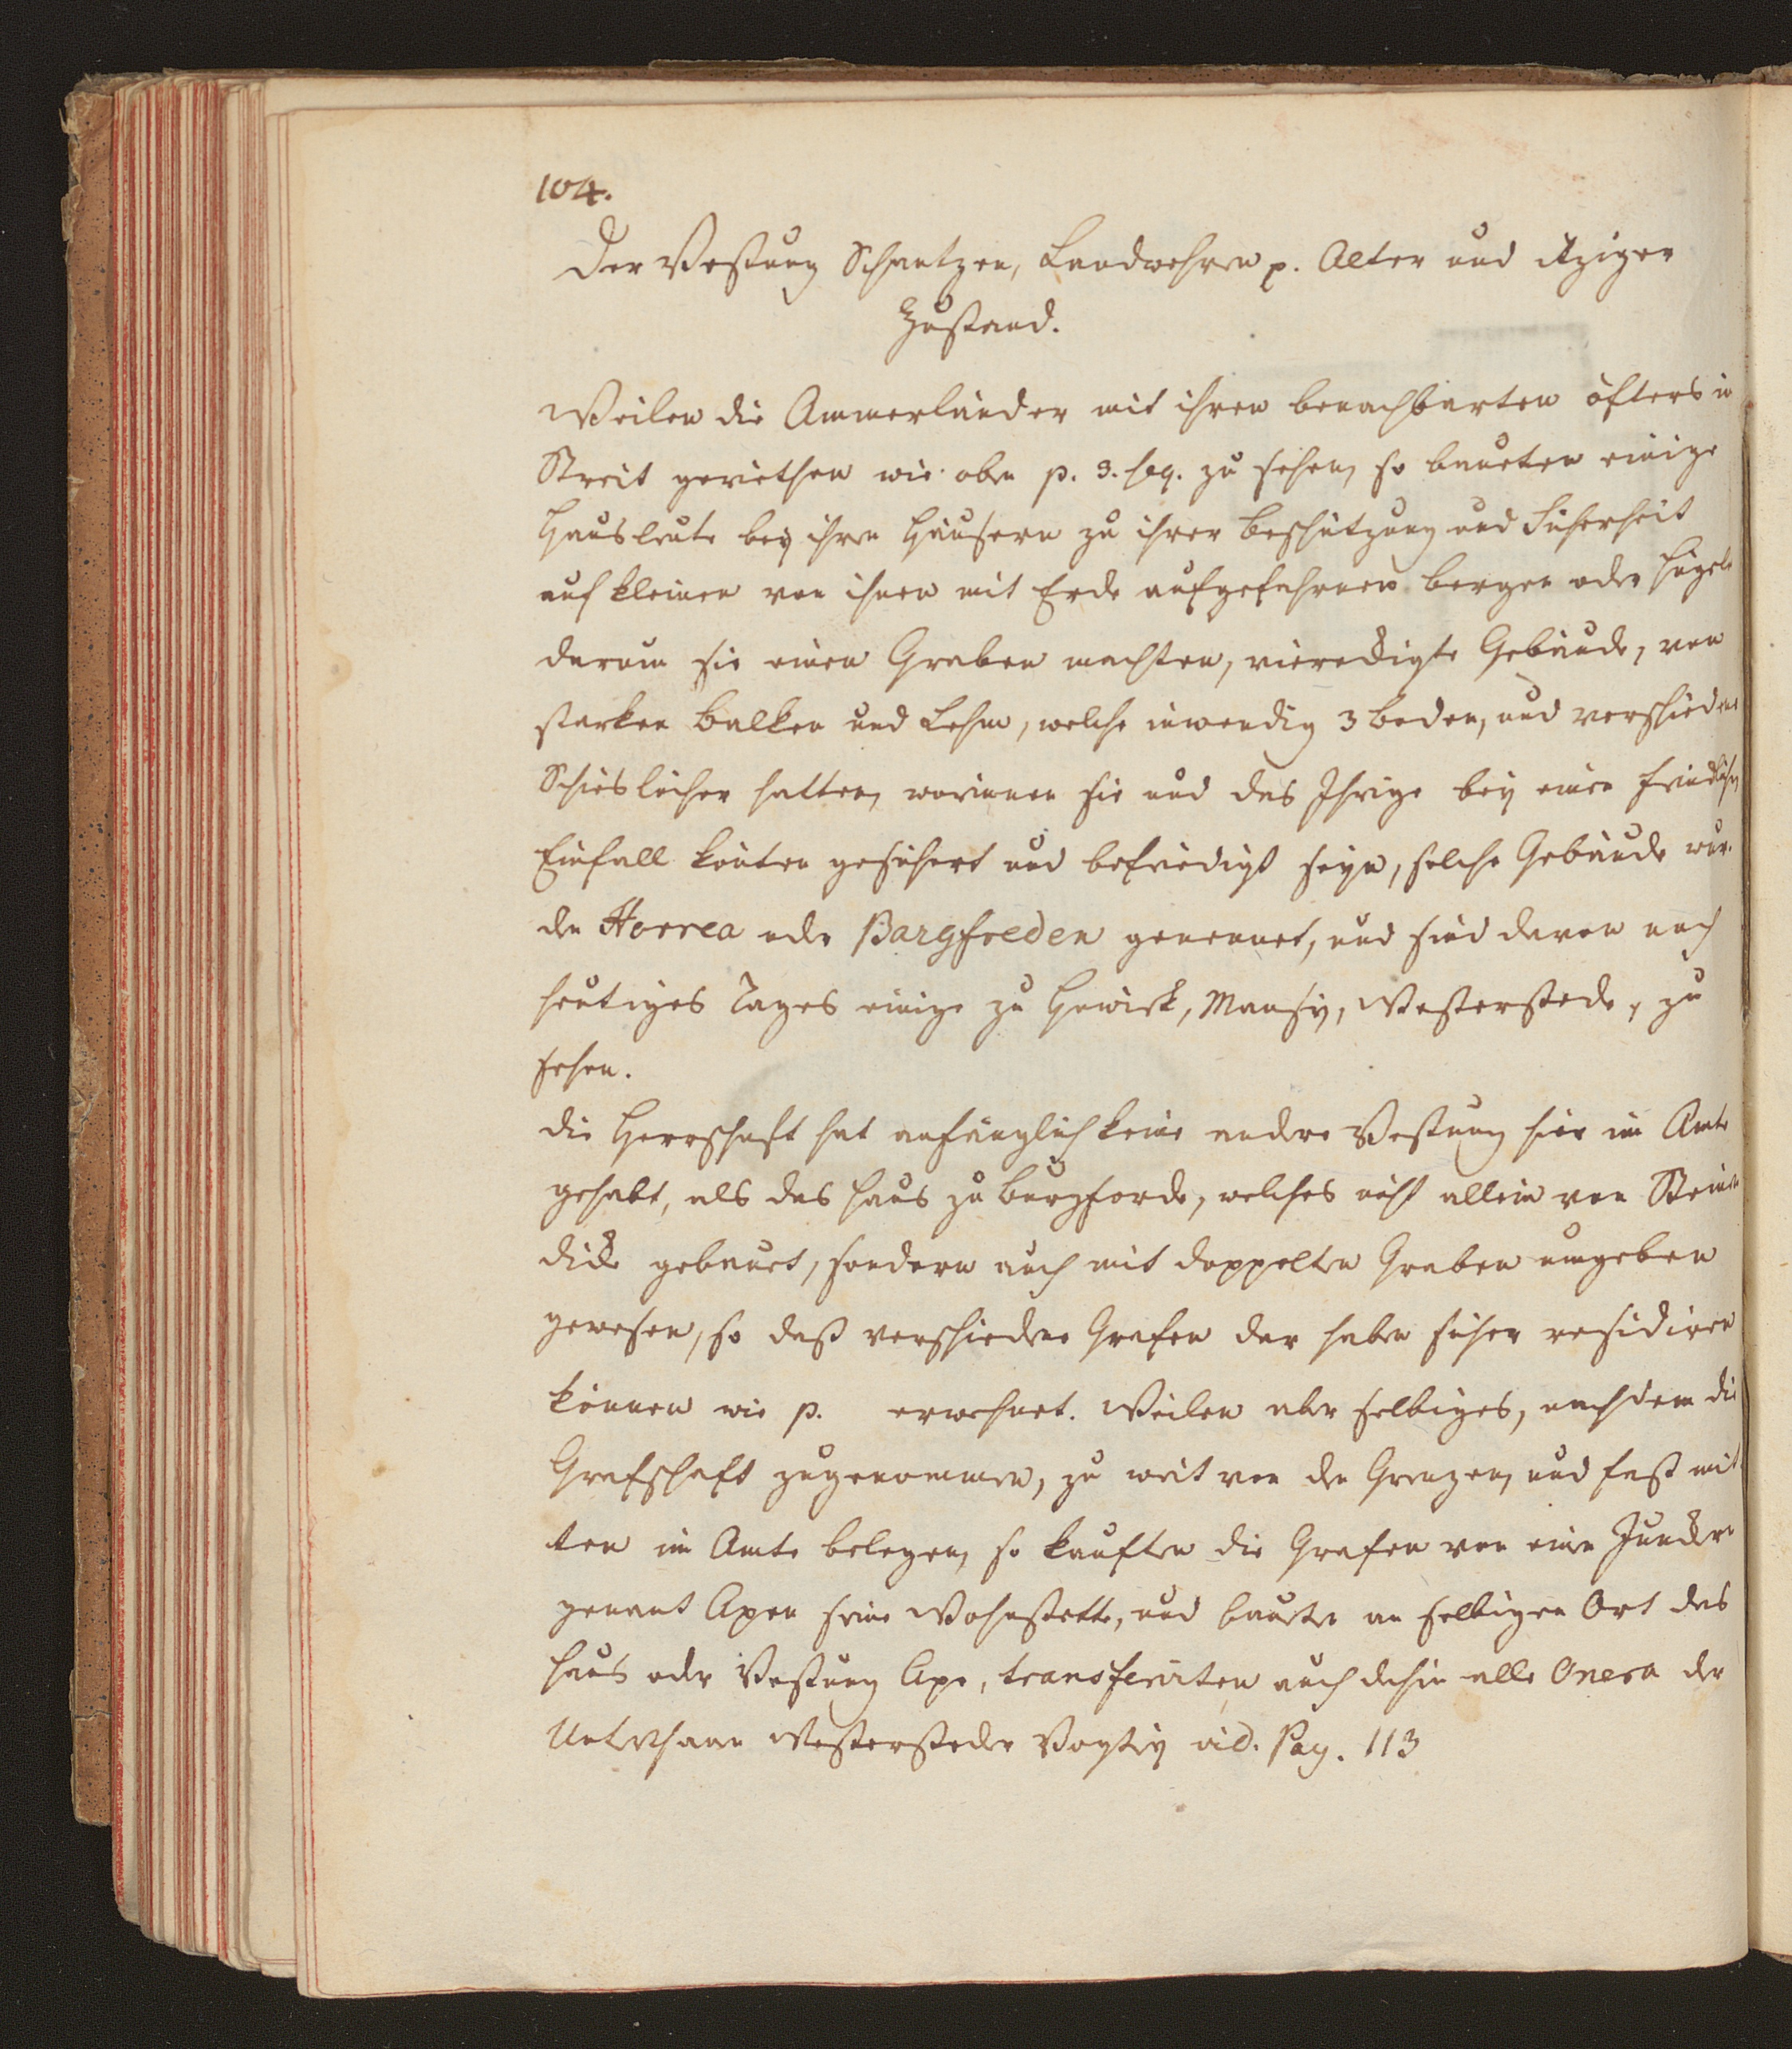 104.
Der Vestung Schantzen, Landwehren p. Alter und itziger
Zustand.
Weilen die Ammerländer mit ihren benachbarten öfters in
Streit geriethen wie oben p. 3. seq. zu sehen, so baueten einige
Hausleute bey ihren Häusern zu ihrer Beschützung und Sicherheit
auf kleinen von ihnen mit Erde aufgefahrnen bergen oder Hügeln
darum sie einen Graben machten, viereckigte Gebäude, von
starken Balken und Lehm, welche inwendig 3 Boden, und verschiedene
Schieslöcher hatten, worinnen sie und das Ihrige bey einen feindlichen
Einfall könten gesichert und befriedigt seyn, solche Gebäude wur-
den Horrea oder Bargfreden genennet, und sind davon noch
heutiges Tages einige zu Howiek, Mansie, Westerstede, zu
sehen.
Die Herrschaft hat anfänglich keine andere Vestung hier im Amte
gehabt, als das Haus zu Burgforde, welches nicht allein von Steinen
dicke gebauet, sondern auch mit doppelten Graben umgeben
gewesen, so daß verschiedene Grafen dar haben sicher residiren
können wie p. erwehnet. Weilen aber selbiges, nachdem die
Grafschaft zugenommen, zu weit von den Grenzen, und fast mit-
ten im Amte belegen, so kauften die Grafen von einen Juncker
genant Apen seine Wohnstette, und bauten an selbigen Ort das
Haus oder Vestung Ape, transferirten auch dahin alle Onera der
Unterthanen Westersteder Vogtey vid. Pag. 113